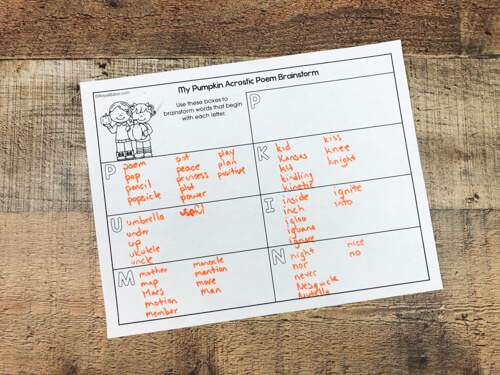 RoyalBaloo.com
My Pumpkin Acrostic Poem Brainstorm
Use these boxes to
brainstorm words that begin
with each letter.
P
P
poem pot play
pop peace plan
pencil princess positive
popsicle plot
power
K
kid kiss
Kansas knee
kit knight
kindling
kinetic
U
umbrella useful
under
up
ukulele
uncle
I
inside ignite
inch into
igloo
iguana
ignore
M
mother monocle
map mention
Mars more
motion man
member
N
night nice
nor no
never
Nesquick
Nutella